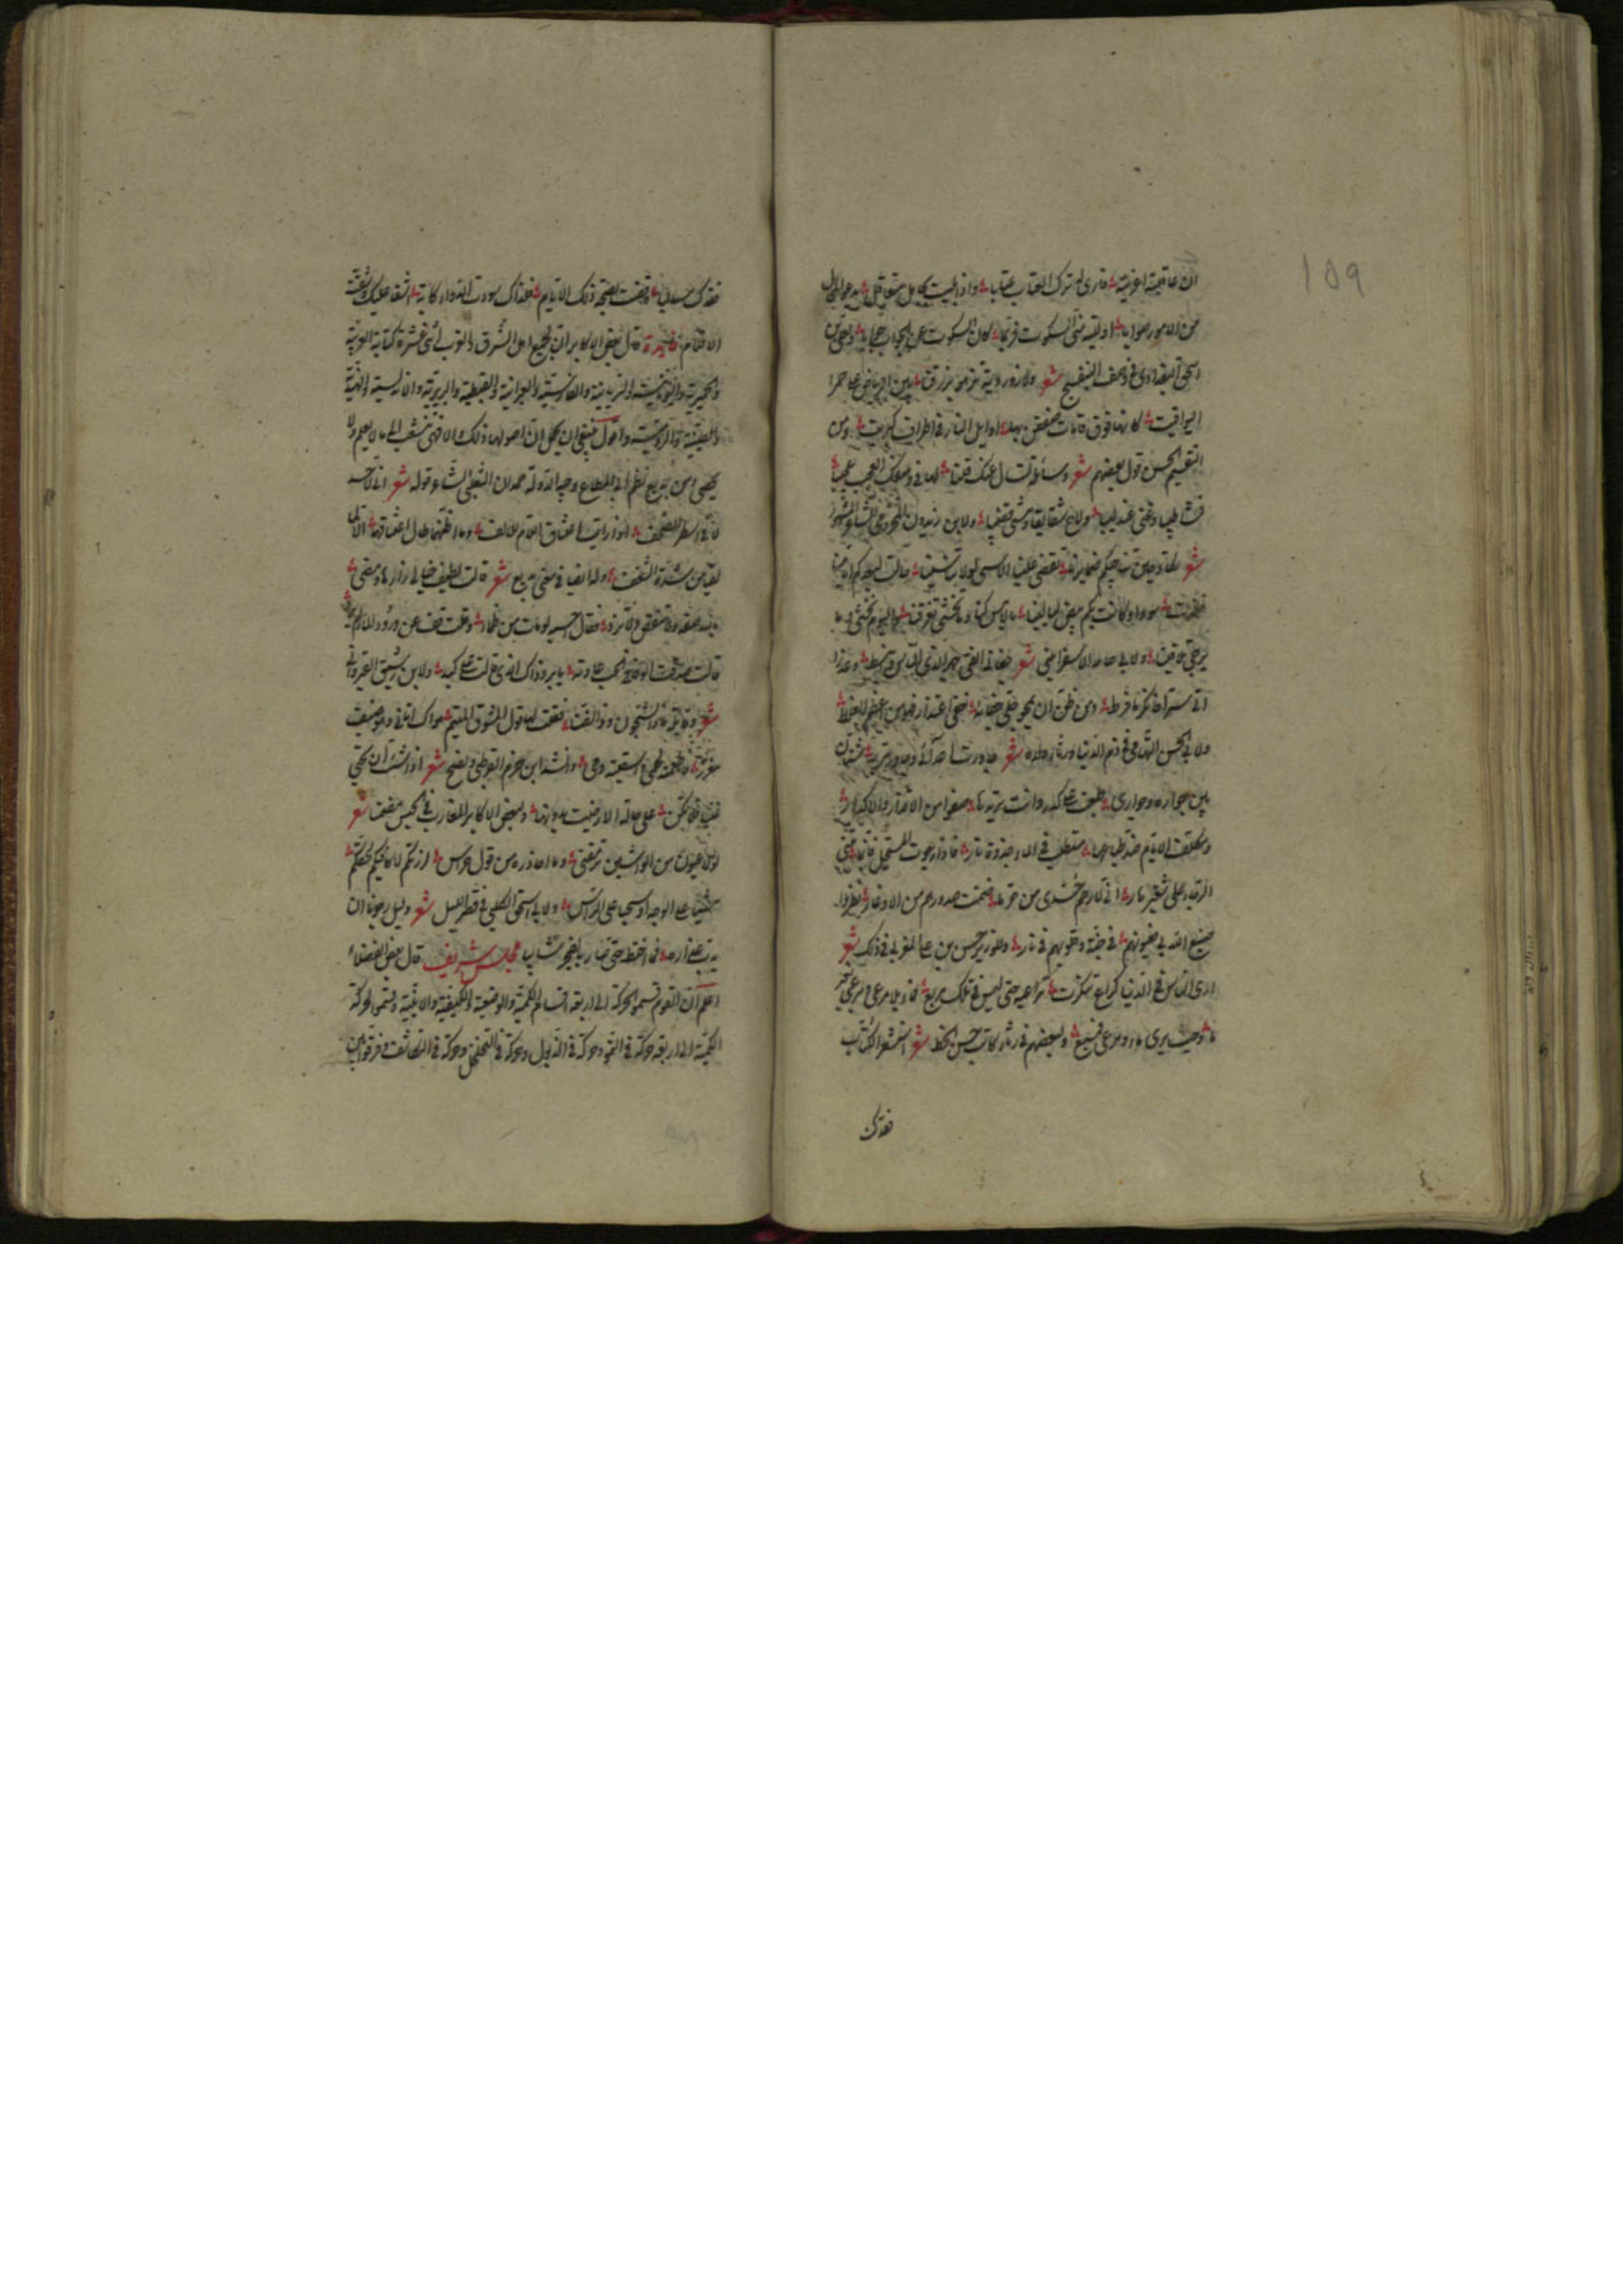 ان عاتبته اغريته فارى له ترك العتاب عتابا واذا بليت بجاهل متغافل يدعو المحال
من الامور صوابا اوليته منى السكوت فربما كان السكوت عن الجواب جوابا ولعلى بن
اسحق البغدادى فى وصف البنفسج شعر ولازوردية تزهو بزرقتها بين الرياض على حمر
اليواقيت كانها فوق قامات ضعفن بها اوايل النار فى اطراف كبريت ومن
التقسيم الحسن قول بعضهم شعر وسائلة تسال عنك قلنا لها فى وصفك العجب العجيبا
رنا ظبيا وغنى عندليبا ولاح شقايقا ومشى قضيبا ولابن زيدون المخزومى الشاعر المشهور
شعر نكاد حين تناجيكم ضمايرنا يقضى علينا الاسى لولا تاسينا حالت لبعدكم ايامنا
فغدت سودا وكانت بكم بيضا ليالينا بالامس كنا وما نخشى تفرقنا واليوم نحن وما
يرجى تلاقينا ولابى حامد الاسفراينى شعر
انى ستر ما فرط ومن ظن ان يمحو جلى جفائه خفى اعتذار فهو من اعظم الغلط
ولابى الحسن التهامى فى ذم الدنيا ورثاء ولده شعر جاورت اعدائى وجاور ربه شتان
بين جواره وجوارى طبعت على كدر وانت تريدها صفوا من الاقذار والاكدار
ومكلف الايام ضد طباعها متطلب فى الماء جذوة نار فاذا رجوت المستحيل فانما تبنى
الرجاء على شفير هار انى لارحم حسدى من حر ما ضمت صدورهم من الاوغار نظروا
صنيع الله بى فعيونهم فى جنة وقلوبهم فى نار وللوزير حسن بن على المغربى فى ذلك شعر
ارى الناس فى الدنيا كراع تنكرت مراعيه حتى ليس فى تلك مربع فماء بلا مرعى ومرعى بغير
ما وحيث يرى ماء ومرعى فمسبع ولبعضهم فى رثاء كاتب حسن الخط شعر استشعر الكتاب
فقدك
فقدك سالفا وقضت بصحة ذلك الايام فلذاك سودت الدواة كآبة اسفا عليك وشقت
الاقلام فائدة قال بعض الاكابر ان لجميع اهل الشرق والغرب اثنى عشرة كتابة العربية
والحميرية واليونانية والسريانية والفارسية والعبرانية والقبطية والبربرية والاندلسية والهندية
والصينية والرومية واقول ينبغى ان يحمل ان اصولها ذلك والا فهى تنشعب الى ما لا يعلم ولا
يحصى ومن بديع نظم ابى المطاع وجيه الدولة حمدان التغلبى الشاعر قوله شعر انى لاحسد
لا فى اسطر الصحف اذا رايت اعتناق اللام للالف وما اظنهما طال اعتناقهما الا لما
لقيا من شدة الشغف وله ايضا فى معنى بديع شعر قالت لطيف خيال زارنى ومضى
بالله صفه ولا تنقص ولا تزد فقال خلفته لو مات من ظماء وقلت قف عن ورود الماء لم يرد
قالت صدقت الوفا فى الحب عادته يا برد ذاك الذى قالت على كبدى ولابن رشيق القيروانى
شعر وقايلة ماذا الشحوب وذا الضنا فقلت لها قول المشوق المتيم هواك اتانى وهو ضيف
اعزه فاطعمته لحمى واسقيته دمى وانشد ابن حزم القرطبى ونصح شعر اذا شئت ان تحيى
غنيا فلا تكن على حالة الا رضيت بدونها ولبعض الاكابر المغاربة شعر
لولا عيون من الواشين ترمقنى وما احاذره من قول حراس لزرتكم لا اكافيكم بجفوتكم
مشيا على الوجه او سعيا على الراس ولابى اسحق الكلبى فى قصر الليل شعر وليل رجونا ان
يدب عذاره فما اختط حتى صار بالفجر شائبا مجلس شريف قال بعض الفضلاء
اعلم ان القوم قسموا الحركة الى اربعة اقسام الكمية والوضعية والكيفية والاينية وقسموا الحركة
الكمية الى اربعة حركة فى النمو وحركة فى الذبول وحركة فى التخلخل وحركة فى التكاثف وفرقوا بين